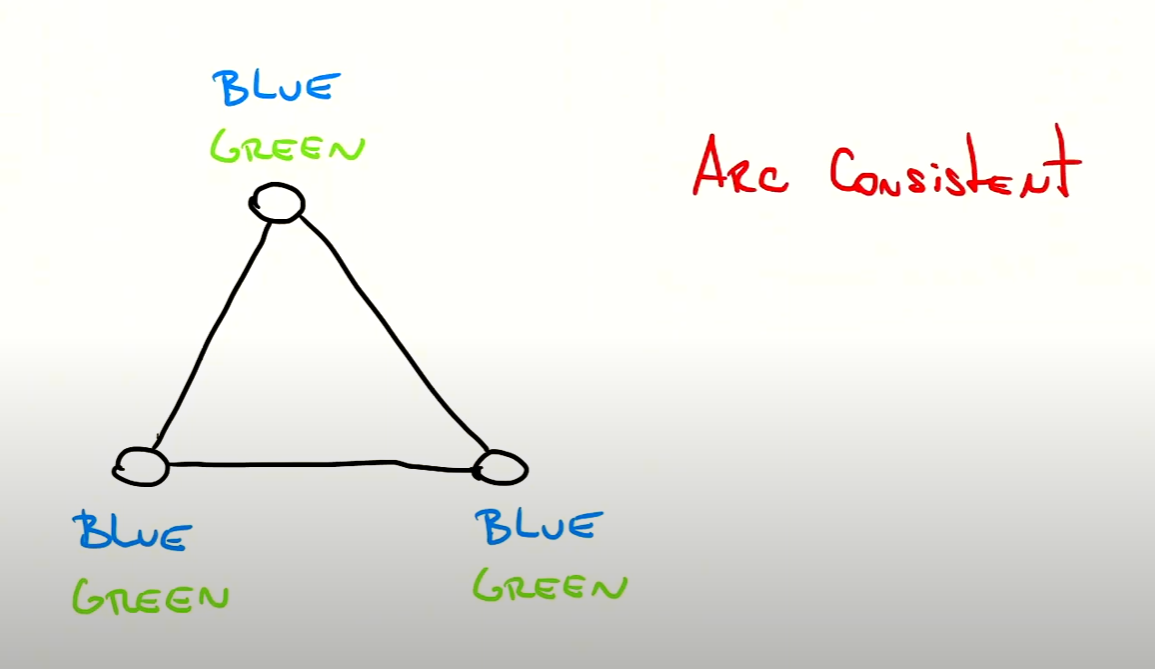 BLUE
GREEN
ARC CONSISTENT
BLUE
GREEN
BLUE
GREEN